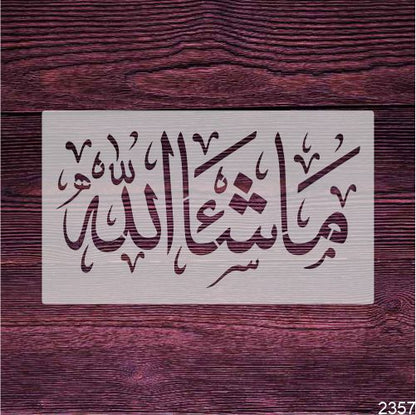 مَا شَئَا اللّٰهُ
2357